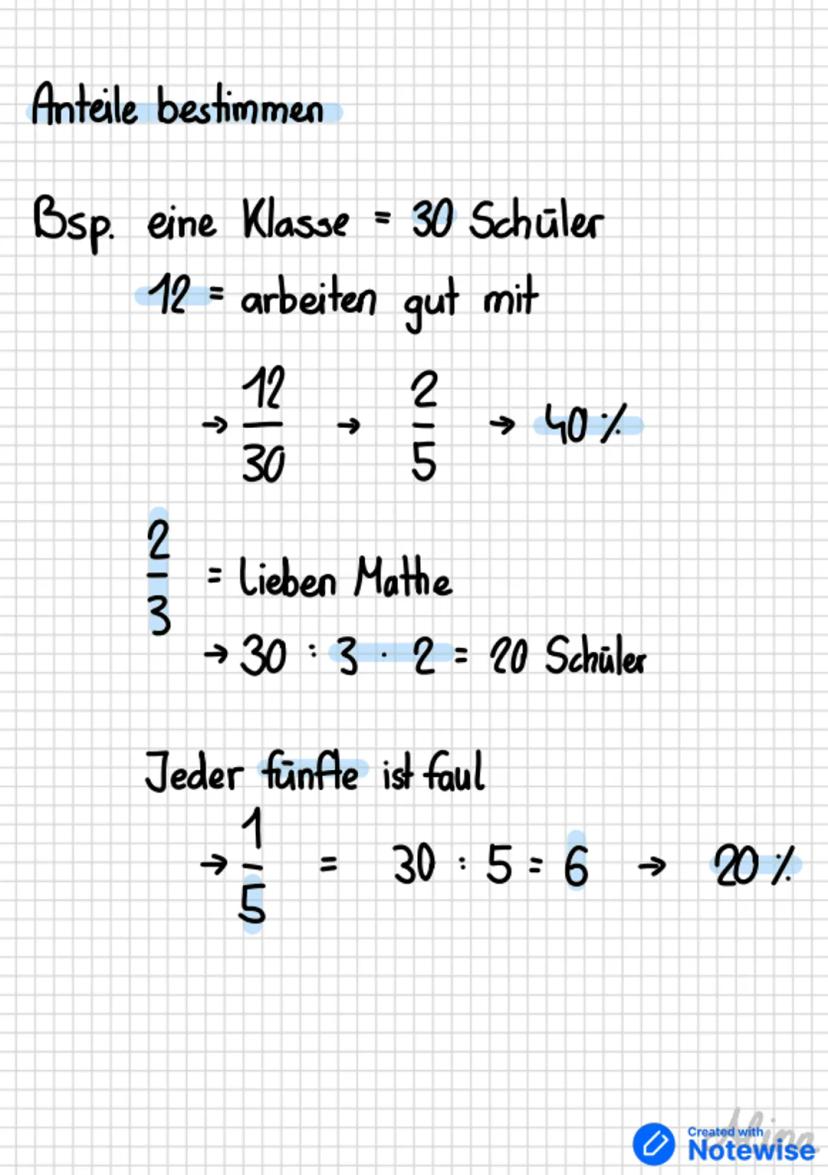 Anteile bestimmen
Bsp. eine Klasse = 30 Schüler
12 = arbeiten gut mit
→ 12/30 → 2/5 → 40 %
2/3 = lieben Mathe
→ 30 : 3 · 2 = 20 Schüler
Jeder fünfte ist faul
→ 1/5 = 30 : 5 = 6 → 20 %
Created with
Notewise